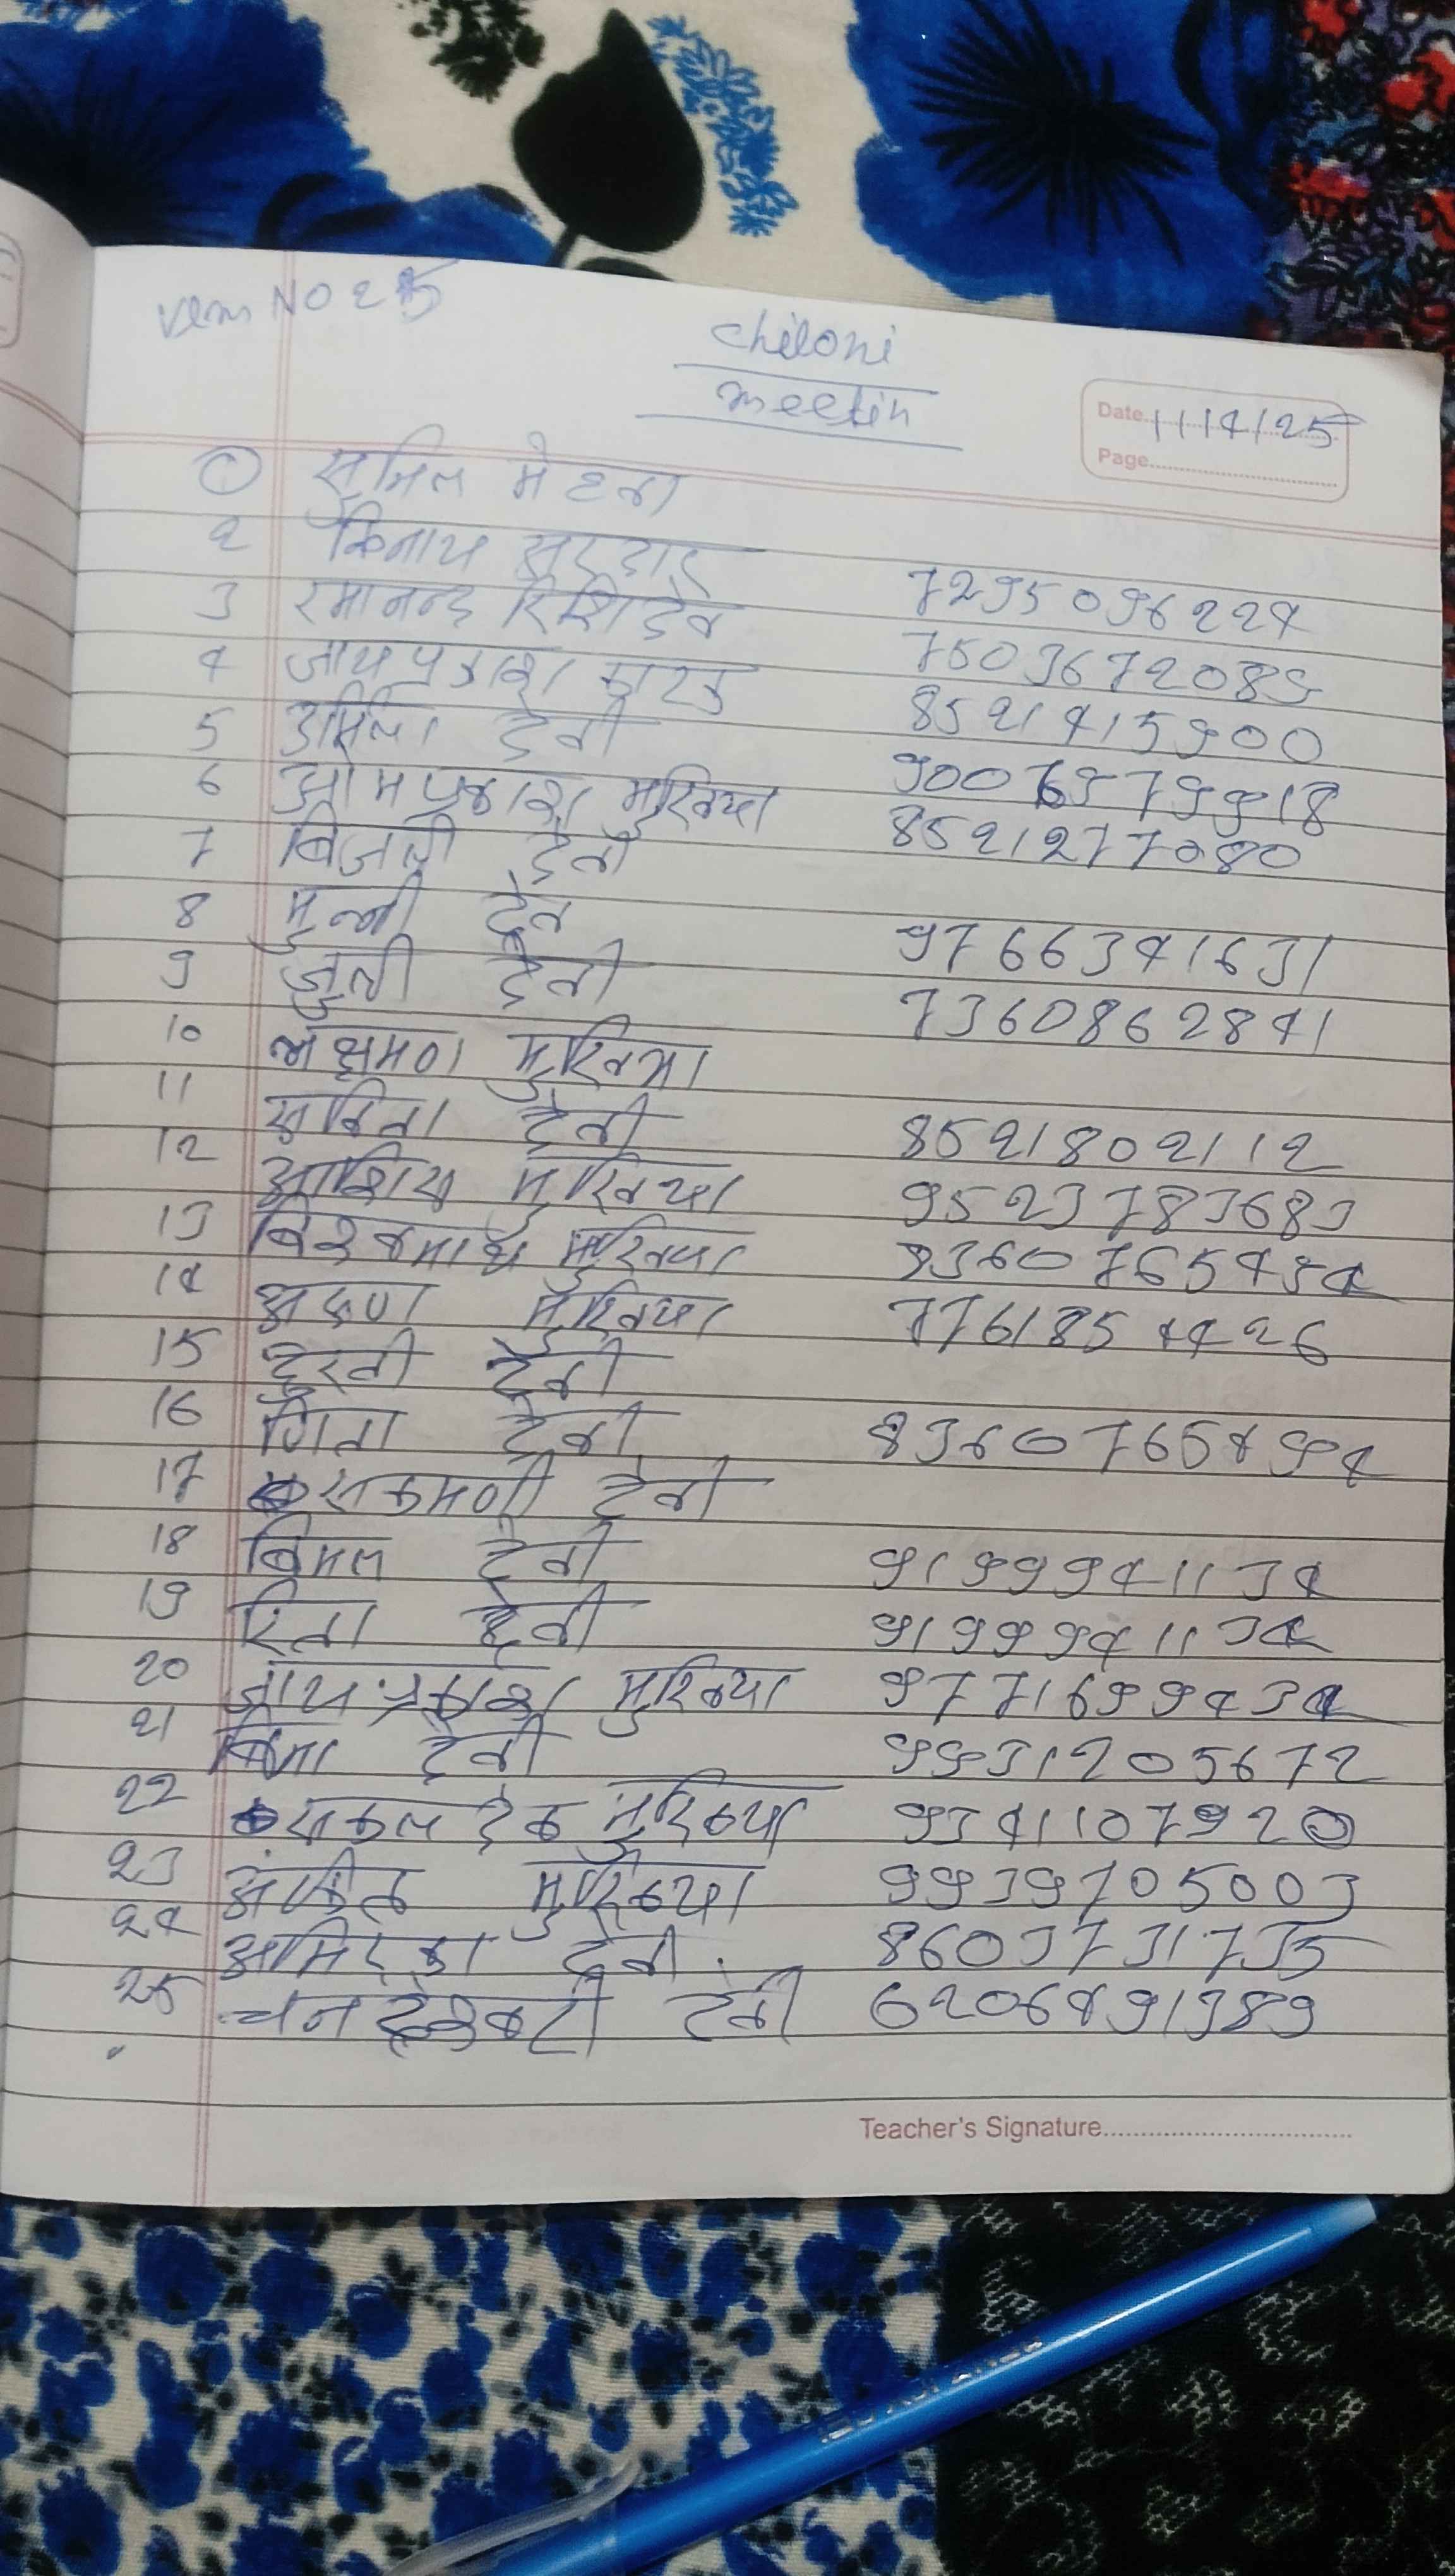 No 25
chiloni
meetin
Date 11/4/25
Page
1 सुमित मेहता
2 सरदार 7295096224
3 रमानन्द रिशिदेव 7503672089
4 जायप्रकाश 8521415900
5 उर्मिला देवी 9007979918
6 ओमप्रकाश मुखिया 8521277080
7 बिजली देवी
8 मुन्नी देव 9766341631
9 जुली देवी 7360862841
10 लक्षमण मुखिया
11 सबिता देवी 8521802112
12 आशिष मुखिया 9523783683
13 बिश्वनाथ मुखिया 9360765494
14 अरूण मुखिया 7761854426
15 देवी
16 गिता देवी 9360765494
17 रूकमणी देवी
18 बिमल देवी 9199941134
19 रिता देवी 9199941134
20 जायप्रकाश मुखिया 9771699434
21 बिभा देवी 9931205672
22 सकलदेव मुखिया 9341107920
23 अंकित मुखिया 9939705003
24 अमिरका देवी 8603731735
25 चनदेश्वरी देवी 6206491389
Teacher's Signature